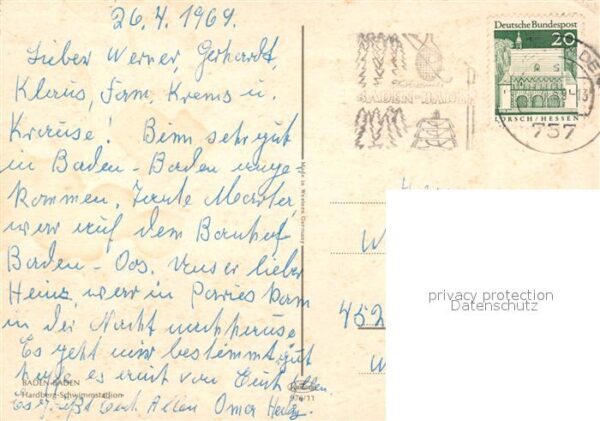 26.4.1969.
Lieber Werner, Gerhardt,
Klaus, Fam, Krems u.
Krause! Binn sehr gut
in Baden-Baden ange
kommen, Tante Martha,
war auf dem Banhof
Baden-Oos. Unser lieber
Heinz, war in Parries kam
in der Nacht nachhause
Es geht mir bestimmt gut
hoffe es auch von Euch Allen.
Es grüßt Euch Allen Oma
BADEN-BADEN
Hardberg-Schwimmstadion
976/11
Made in Western Germany
BADEN-BADEN
Deutsche Bundespost
20
LORSCH/HESSEN
13
757
W
452
W
privacy protection
Datenschutz